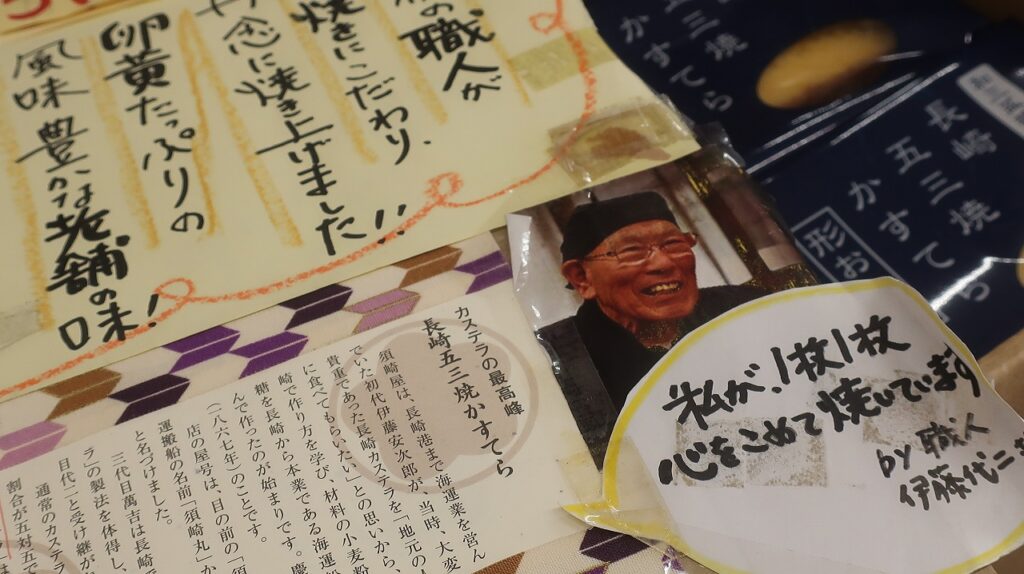 の職人が
焼きにこだわり、
念に焼き上げました!!
卵黄たっぷりの
風味豊かな老舗の味!
五三焼
かすてら
長崎
五三焼
かすてら
形お
私が、1枚1枚
心をこめて焼いています
by 職人
伊藤代二
カステラの最高峰、
長崎五三焼かすてら
須崎屋は、長崎港まで海運業を営ん
でいた初代伊藤安次郎が、当時、大変
貴重であった長崎カステラを「地元の
に食べてもらいたい」との思いから、
崎で作り方を学び、材料の小麦粉
糖を長崎から本業である海運船
んで作ったのが始まりです。慶
(一八六七年)のことです。
店の屋号は、目の前の「須
運搬船の名前「須崎丸」か
と名づけました。
三代目萬吉は長崎で
ラ」の製法を体得し、
目代二と受け継が
通常のカステラ
割合が五対五で